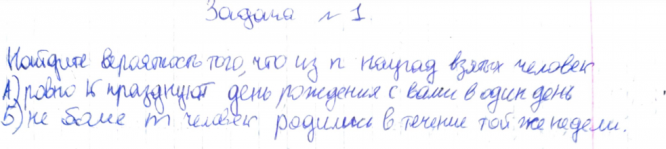 Задача № 1.
Найдите вероятность того, что из n наугад взятых человек
А) ровно k празднуют день рождения с вами в один день
Б) не более m человек родились в течение той же недели.